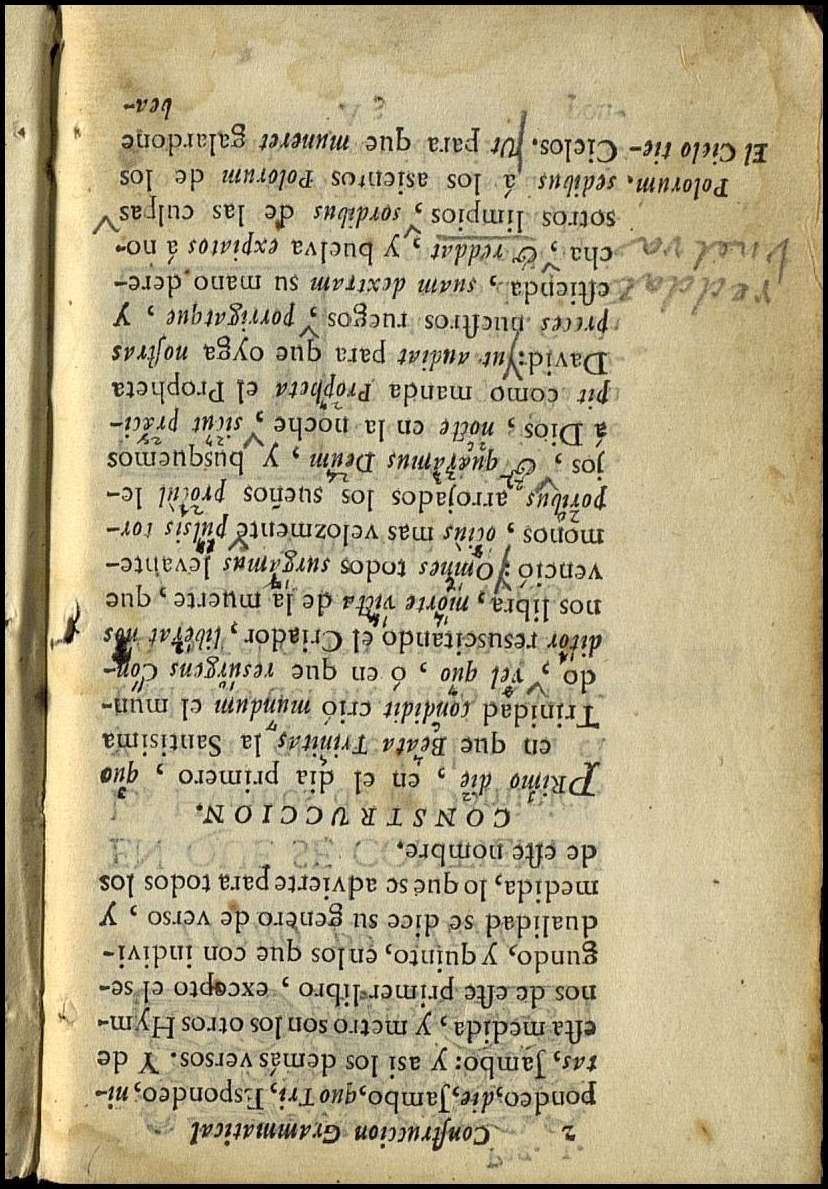 2 Construccion Grammatical
pondeo, die, Jambo, quo Tri, Espondeo, ni-
tas, Jambo: y asi los demás versos. Y de
esta medida, y metro son los otros Hym-
nos de este primer libro, excepto el se-
gundo, y quinto, en los que con indivi-
dualidad se dice su genero de verso, y
medida, lo que se advierte para todos los
de este nombre.
CONSTRUCCION.
PRimo die, en el dia primero, quo
en que Beata Trinitas, la Santisima
Trinidad condidit crió mundum el mun-
do, vel quo, ó en que resurgens Con-
ditor resuscitando el Criador, liberat nos
nos libra, morte victa de la muerte, que
venció: Omnes todos surgamus levante-
monos, ocius mas velozmente pulsis tor-
poribus arrojados los sueños procul le-
jos, & quæramus Deum, y busquemos
á Dios; nocte en la noche, sicut præci-
pit como manda Propheta el Propheta
David: ut audiat para que oyga nostras
preces nuestros ruegos, porrigatque, y
estienda, suam dextram su mano dere-
cha, & reddat, y buelva expiatos á no-
sotros limpios, sordibus de las culpas
Polorum. sedibus á los asientos Polorum de los
El Cielo tie- Cielos. Ut para que muneret galardone
bea-
reddat
buelva